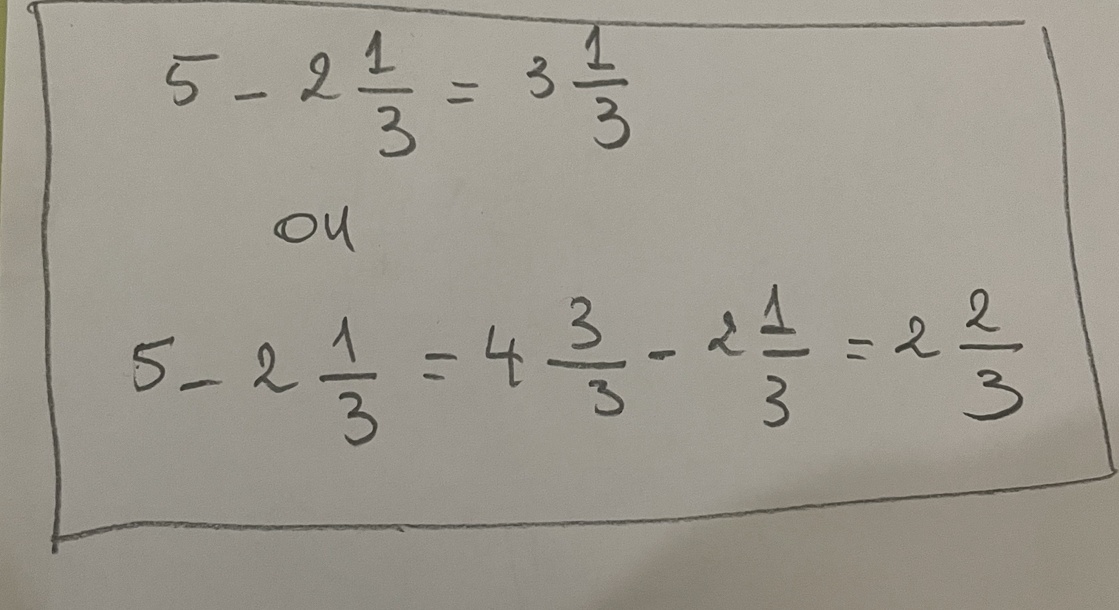 5 - 2 1/3 = 3 1/3
ou
5 - 2 1/3 = 4 3/3 - 2 1/3 = 2 2/3